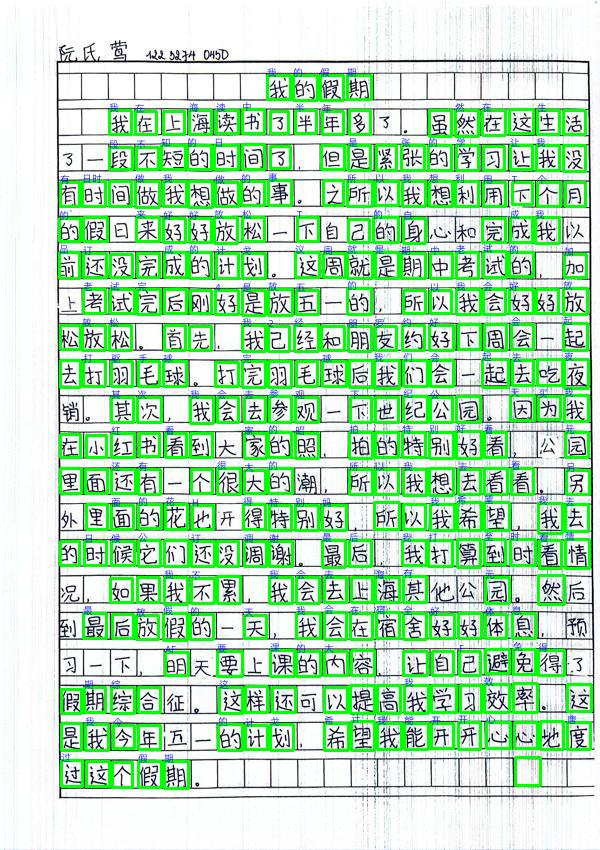 阮氏莺 122 3274 0450
我的假期
我在上海读书了半年多了。虽然在这生活
了一段不短的日时间了，但是紧张的学习让我没
有时间做我想做的事。之所以我想利用下个月
的假日来好好放松一下自己的身心和完成我以
前还没完成的计划。这周就是期中考试的，加
上考试完后刚好是放五一的，所以我会好好放
松放松。首先，我己经和朋友约好下周会一起
去打羽毛球。打完羽毛球后我们会一起去吃夜
销。其次，我会去参观一下世纪公园。因为我
在小红书看到大家的照，拍的特别好看，公园
里面还有一个很大的潮，所以我想去看看。另
外里面的花也开得特别好，所以我希望，我去
的时候它们还没凋谢。最后，我打算到时看情
况，如果我不累，我会去上海其他公园。然后
到最后放假的一天，我会在宿舍好好体息，预
习一下，明天要上课的内容，让自己避免得了
假期综合征。这样还可以提高我学习效率。这
是我今年五一的计划，希望我能开开心心地度
过这个假期。